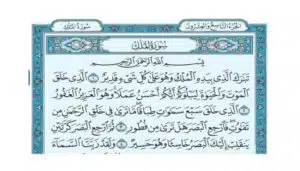 الجزء التاسع والعشرون
سورة الملك
سورة الملك
بسم الله الرحمن الرحيم
تبرك الذي بيده الملك وهو على كل شيء قدير ١ الذي خلق
الموت والحيوة ليبلوكم أيكم أحسن عملا وهو العزيز الغفور
٢ الذي خلق سبع سموت طباقا ما ترى في خلق الرحمن من
تفوت فارجع البصر هل ترى من فطور ٣ ثم ارجع البصر كرتين
ينقلب إليك البصر خاسئا وهو حسير ٤ ولقد زينا السماء